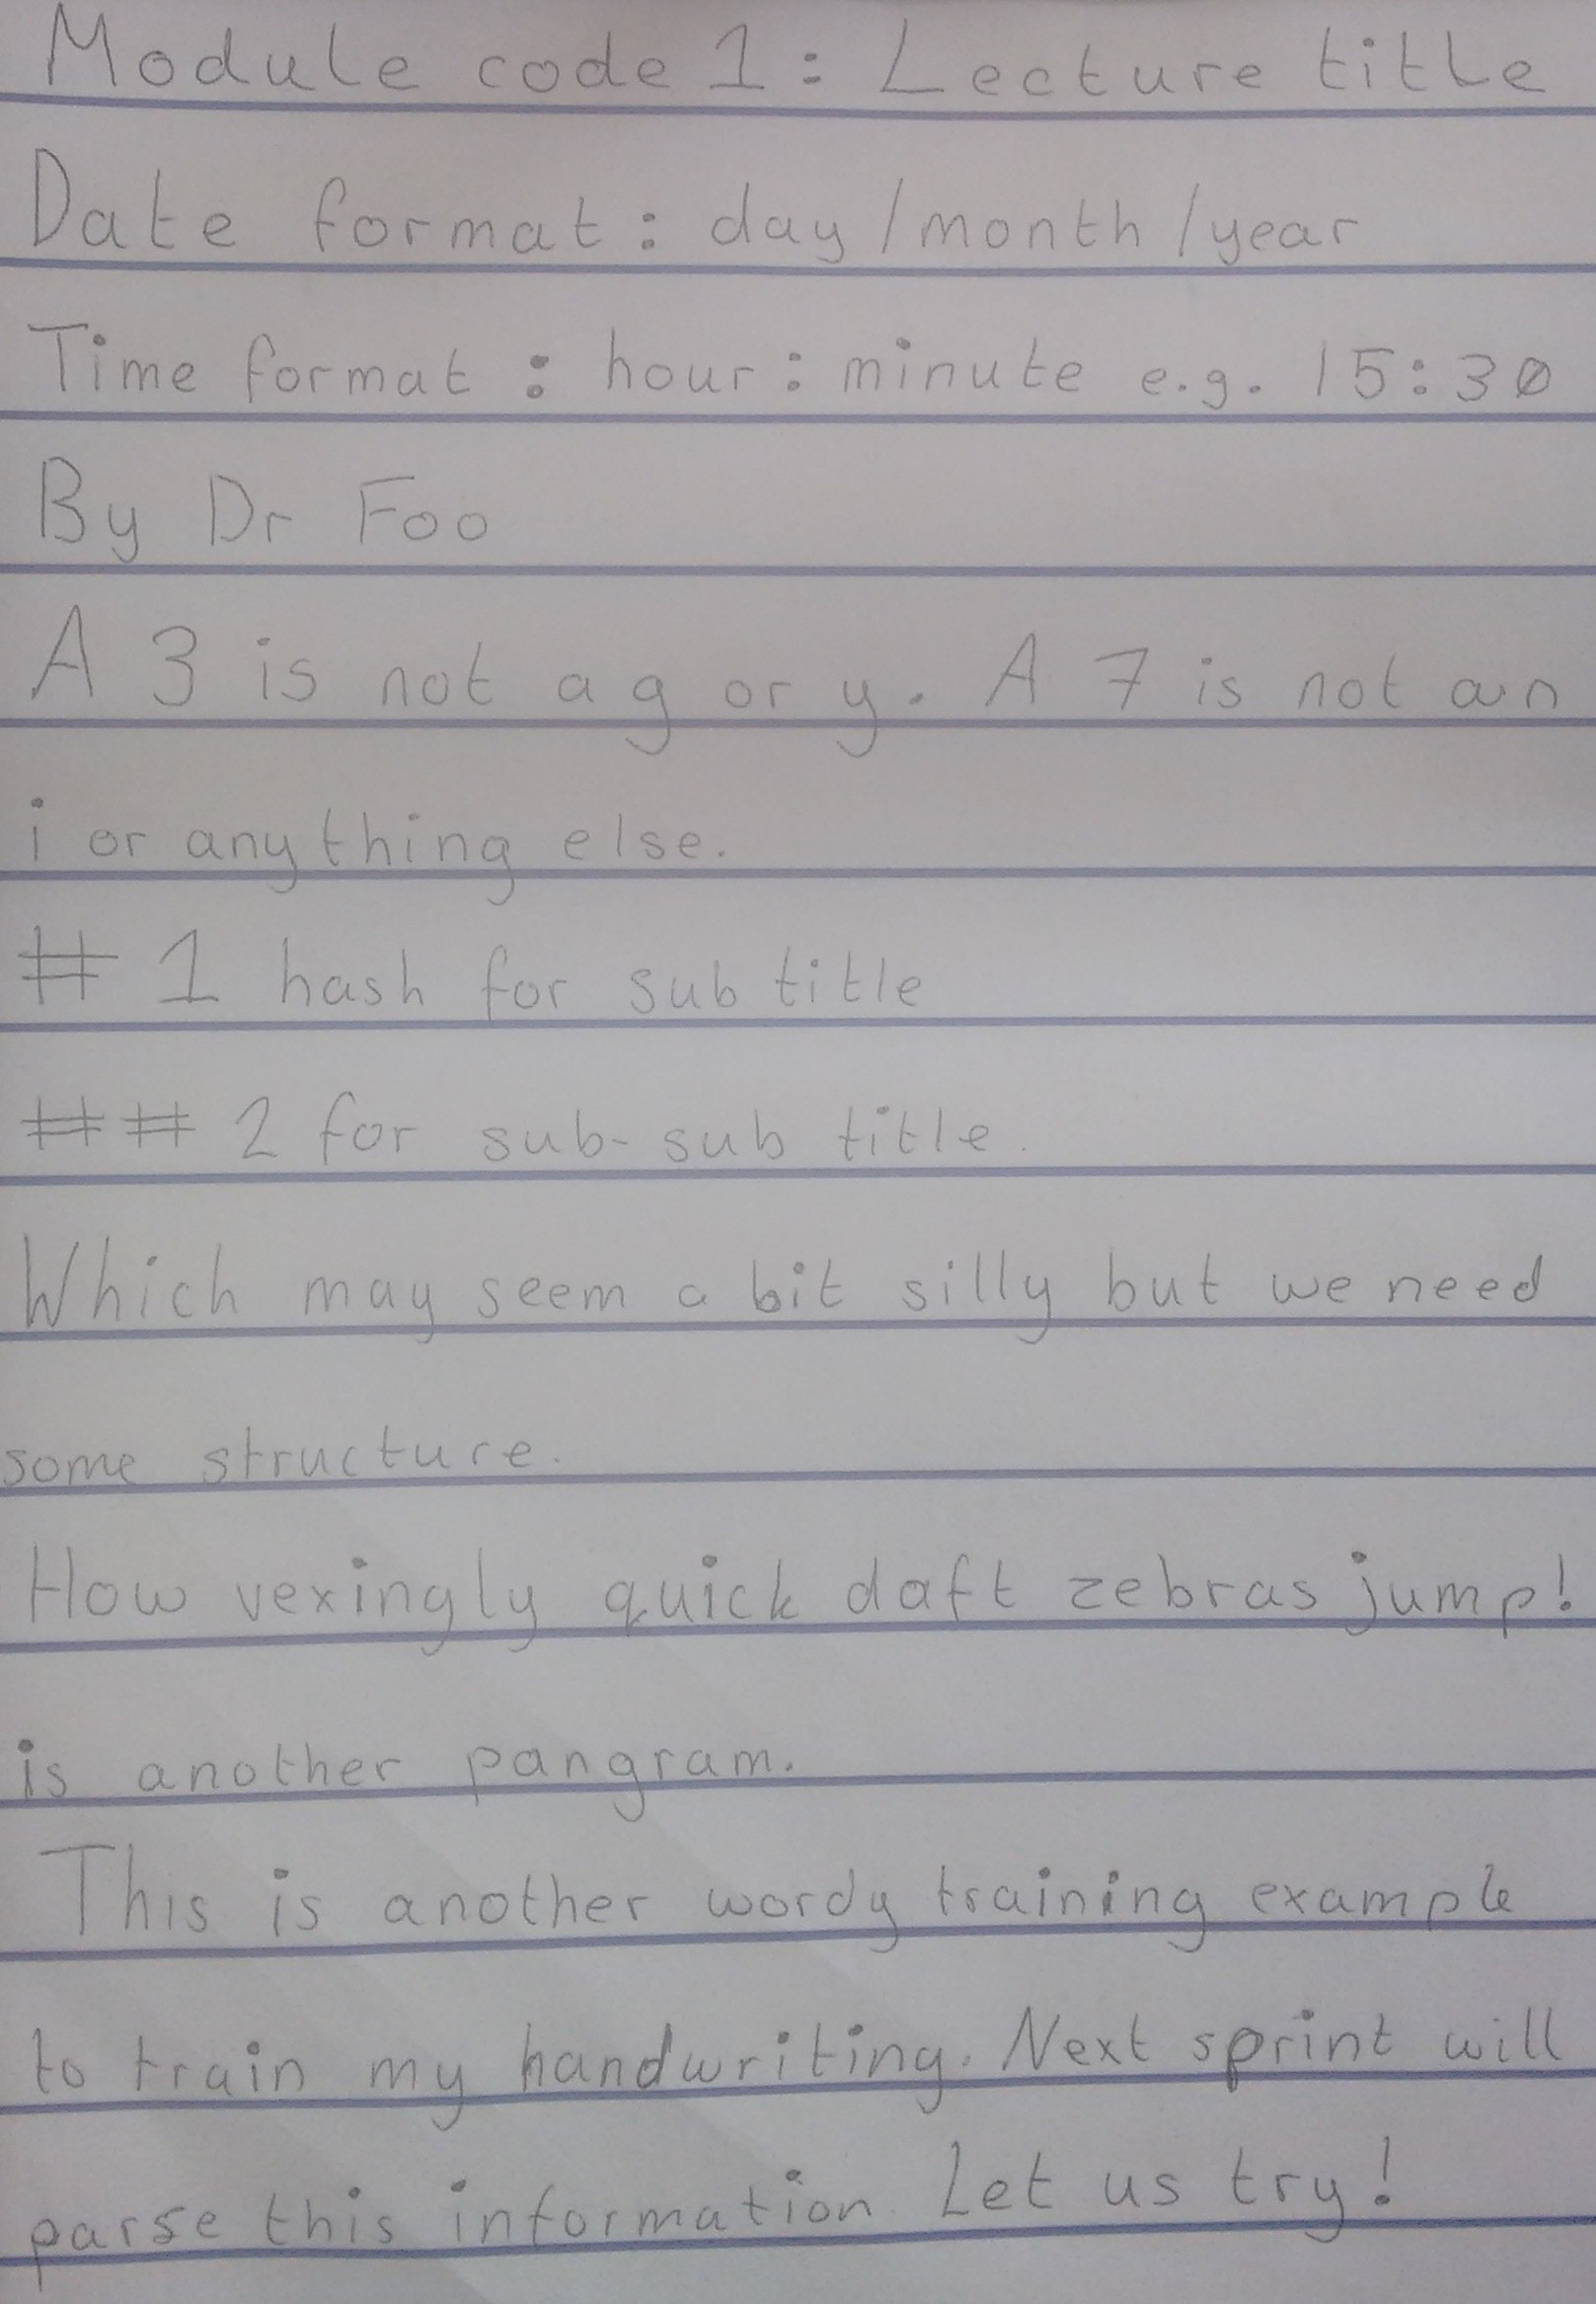 Module code 1: Lecture title
Date format: day/month/year
Time format: hour:minute e.g. 15:30
By Dr Foo
A 3 is not a g or y. A 7 is not an
i or anything else.
# 1 hash for sub title
## 2 for sub-sub title.
Which may seem a bit silly but we need
some structure.
How vexingly quick daft zebras jump!
is another pangram.
This is another wordy training example
to train my handwriting. Next sprint will
parse this information. Let us try!